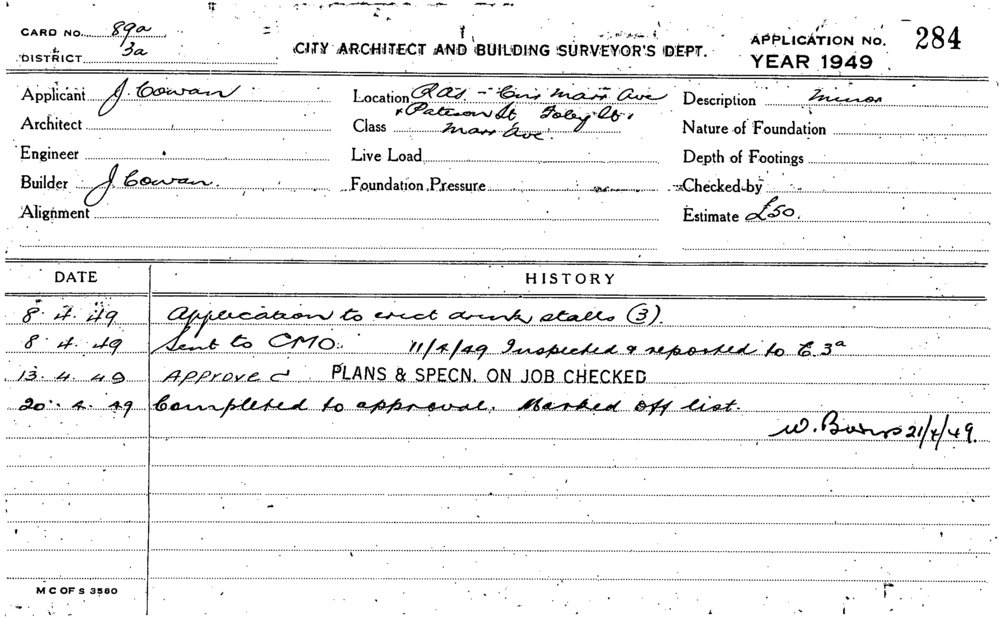 CARD NO. 89a
DISTRICT 3a
CITY ARCHITECT AND BUILDING SURVEYOR'S DEPT.
APPLICATION NO. 284
YEAR 1949
Applicant J. Cowan
Location RAS - Cnr Marr Ave
& Paterson St Foley St.
Description Minor
Architect
Class Marr Ave.
Nature of Foundation
Engineer
Live Load
Depth of Footings
Builder J. Cowan.
Foundation Pressure
Checked by
Alignment
Estimate £50.
DATE HISTORY
8. 4. 49 Application to erect drink stalls (3).
8. 4. 49 Sent to CMO. 11/4/49 Inspected & reported to E. 3a
13. 4. 49 Approved PLANS & SPECN. ON JOB CHECKED
20. 4. 49 Completed to approval. Marked off list.
W. Burns 21/4/49.
M C OF S 3580